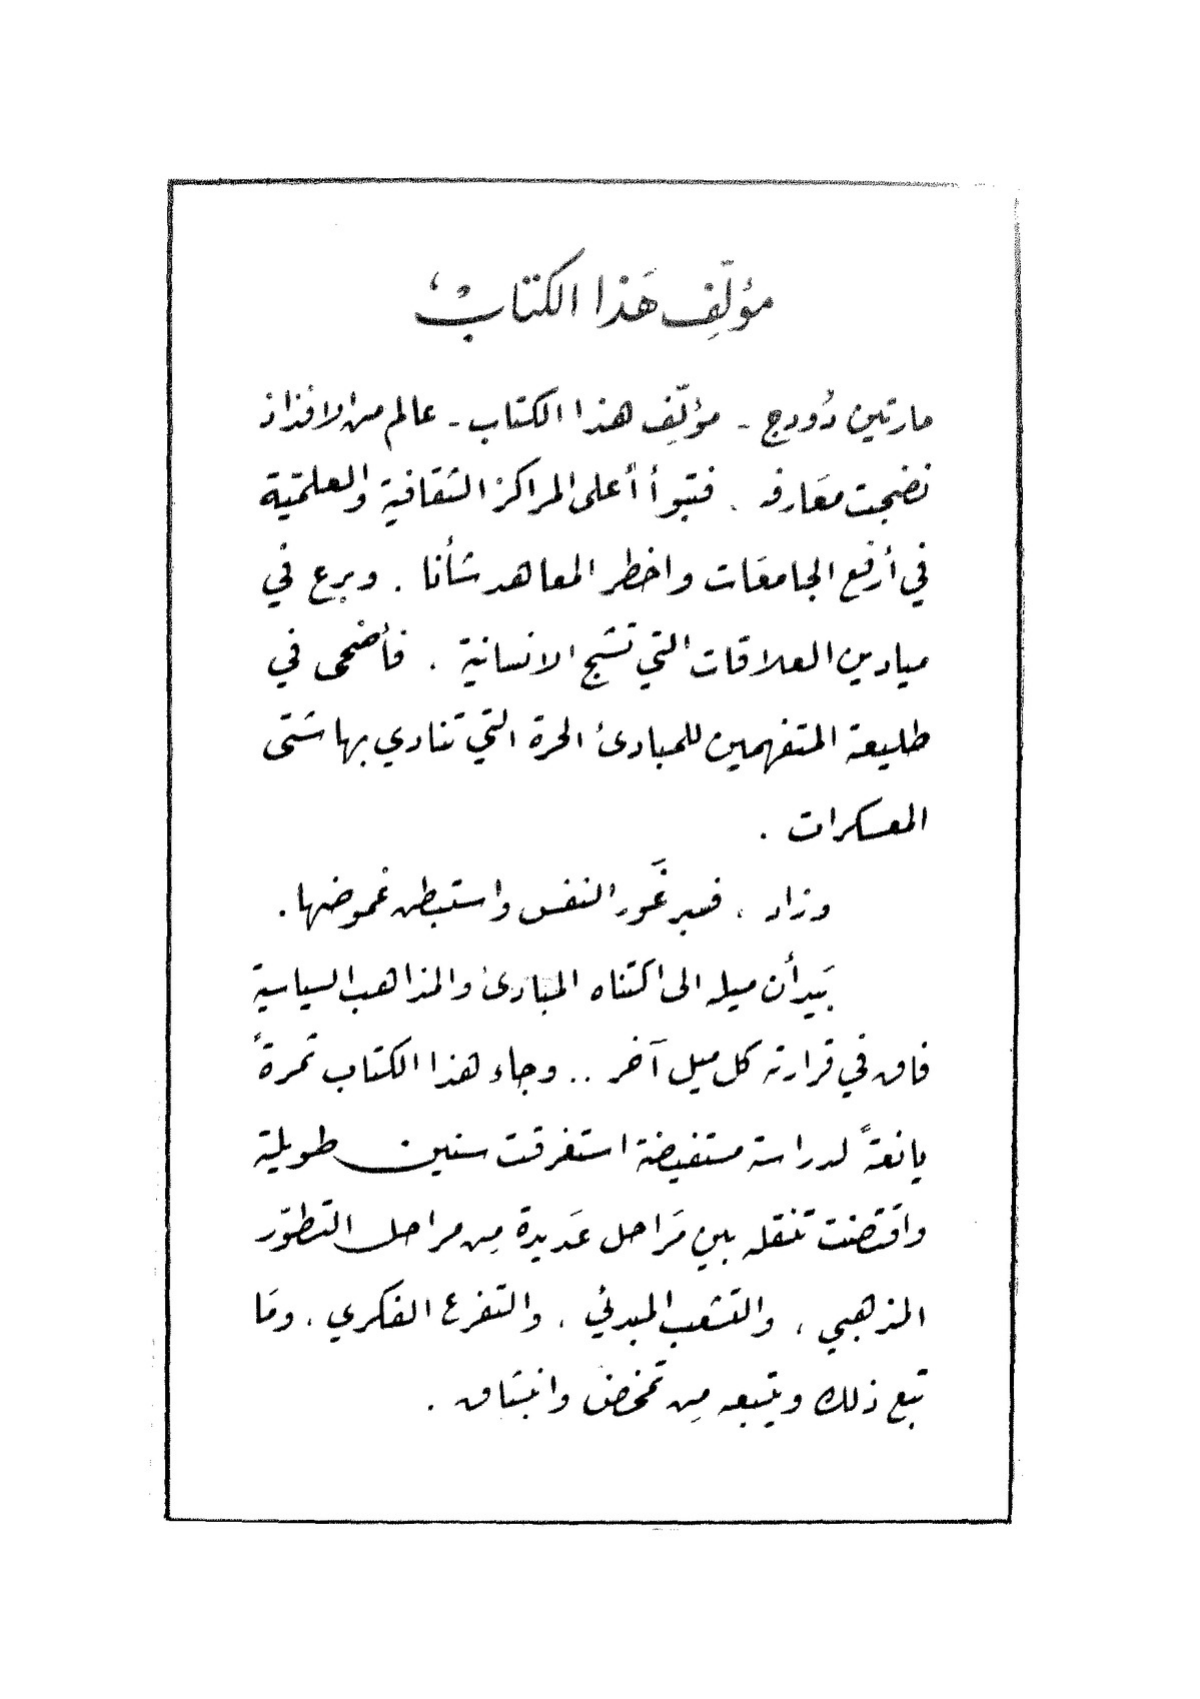 مؤلّفِ هَذا الكتابْ
مارتين دُودج - مؤلّفِ هذا الكتاب - عالم من الافذاذ
نضجت مَعَارفه . فتبوأ أعلى المراكز الثقافية والعلميّة
في أرفع الجامعَات واخطر المعاهد شأنا . وبرع في
ميادين العلاقات التي تشج الانسانية . فأضحى في
طليعة المتفهمين للمبادئ الحرة التي تنادي بها شتى
المعسكرات .
وزاد ، فسبر غَور النفس واستبطن غموضها .
بَيد أن ميله الى اكتناه المبادئ والمذاهب السياسية
فاق في قرارته كل ميل آخر .. وجاء هذا الكتاب ثمرةً
يانعةً لدراسة مستفيضة استغرقت سنين طويلة
واقتضت تنقله بين مَراحل عَديدة مِن مراحل التطوّر
المذهبي ، والتشعب المبدئي ، والتفرع الفكري ، ومَا
تبع ذلك ويتبعه مِن تمخض وانبثاق .